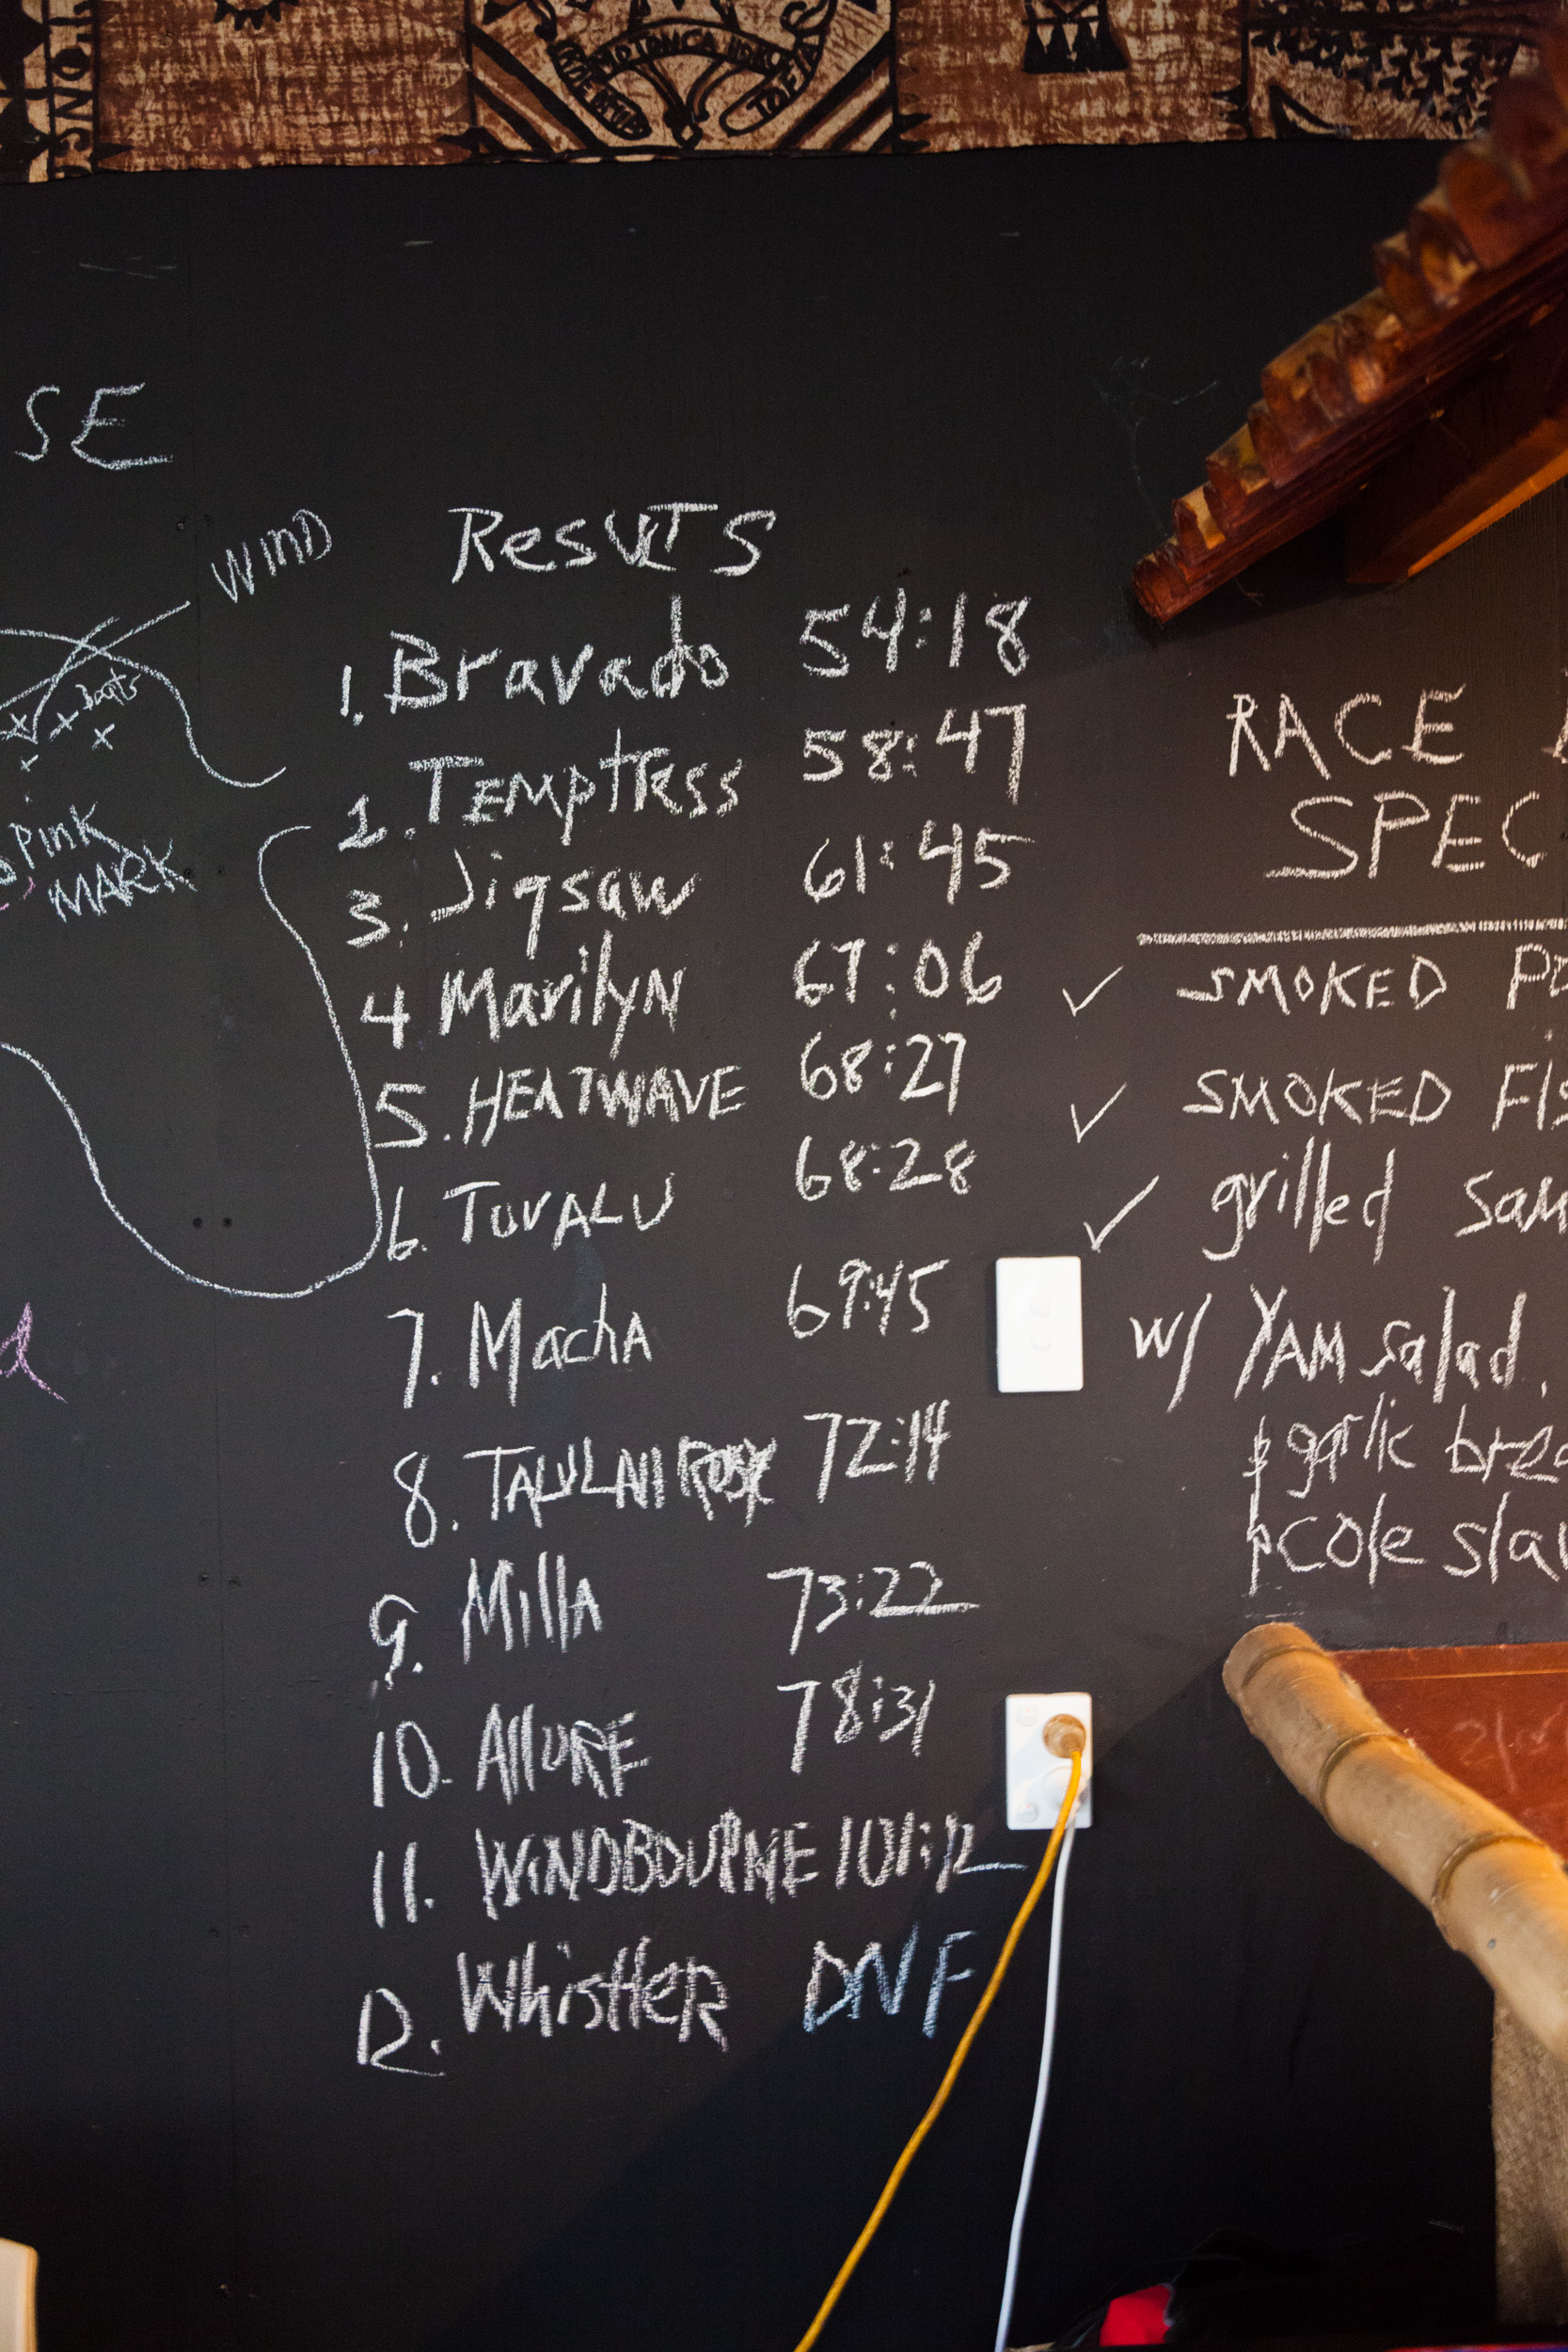 SE
WIND
Boats
Pink
MARK
Results
1. Bravado 54:18
2. Temptress 58:47
3. Jigsaw 61:45
4 Marilyn 67:06
5. HEATWAVE 68:27
6. TUVALU 68:28
7. Macha 69:45
8. TALULAH ROSE 72:14
9. Milla 73:22
10. AllURE 78:31
11. WINDBOURNE 101:12
12. Whistler DNF
RACE
SPEC
✓ SMOKED
✓ SMOKED FIS
✓ grilled
w/ YAM salad,
garlic brea
cole slaw